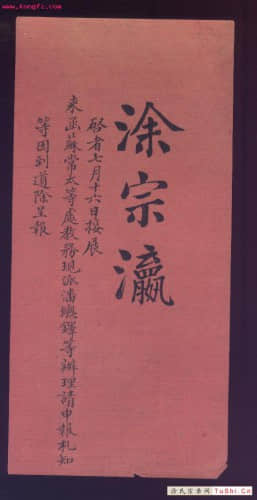 www.kongfz.com
涂宗瀛
啓者七月十六日接展
來函蘇常太等處教務現派潘等辦理請申報札知
等因到道除呈報
涂氏宗亲网
TuShi.Ca